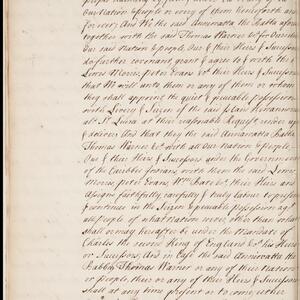 Our Nation & People or any of them henceforth and
for ever; And We the said Annuwatta the Babba afores
together with the said Thomas Warner &c for Ourselves
Our said Nation & People, Our & their Heirs & Successors
do further covenant grant & agree to & with the s
Morris, Peter Evans &c their Heirs & Successors
that We will unto them or any of them or whom
they shall appoint the quiet & peaceable possession
with Livery & Seizin of the said Land
St Lucia at their reasonable Request render up
& deliver And that they the said Annawatta Babba
Thomas Warner &c with all our Nation & People
Our & their Heirs & Successors under the Government
of the Caribbee Islands, with them the said
Morris, Peter Evans, Wm &c their Heirs and
Assigns faithfully, carefully & duly labour to possess
& continue in the Seizin & peaceable possession ag
all people of what Nation soever, other than what
shall or may hereafter be under the Mandate of
Charles the second King of England &c his Heirs
or Successors, And in Case the said Annawatta the
Babba, Thomas Warner or any of their Nation
or People, their or any of their Heirs & Successors
shall at any time present or to come, either